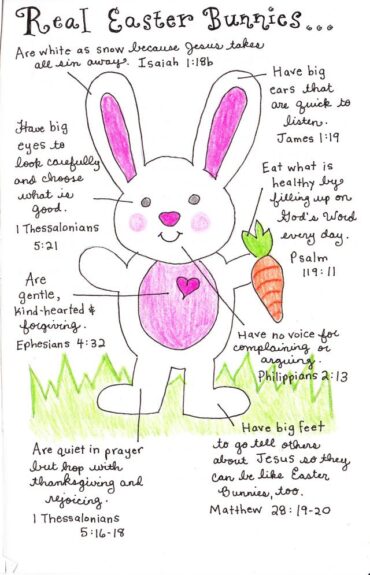 Real Easter Bunnies...
Are white as snow because Jesus takes
all sin away. Isaiah 1:18b
Have big
ears that
are quick to
listen.
James 1:19
Have big
eyes to
look carefully
and choose
what is
good.
1 Thessalonians
5:21
Eat what is
healthy by
filling up on
God's Word
every day.
Psalm
119:11
Are
gentle,
kind-hearted &
forgiving.
Ephesians 4:32
Have no voice for
complaining or
arguing.
Philippians 2:13
Are quiet in prayer
but hop with
thanksgiving and
rejoicing.
1 Thessalonians
5:16-18
Have big feet
to go tell others
about Jesus so they
can be like Easter
Bunnies, too.
Matthew 28:19-20